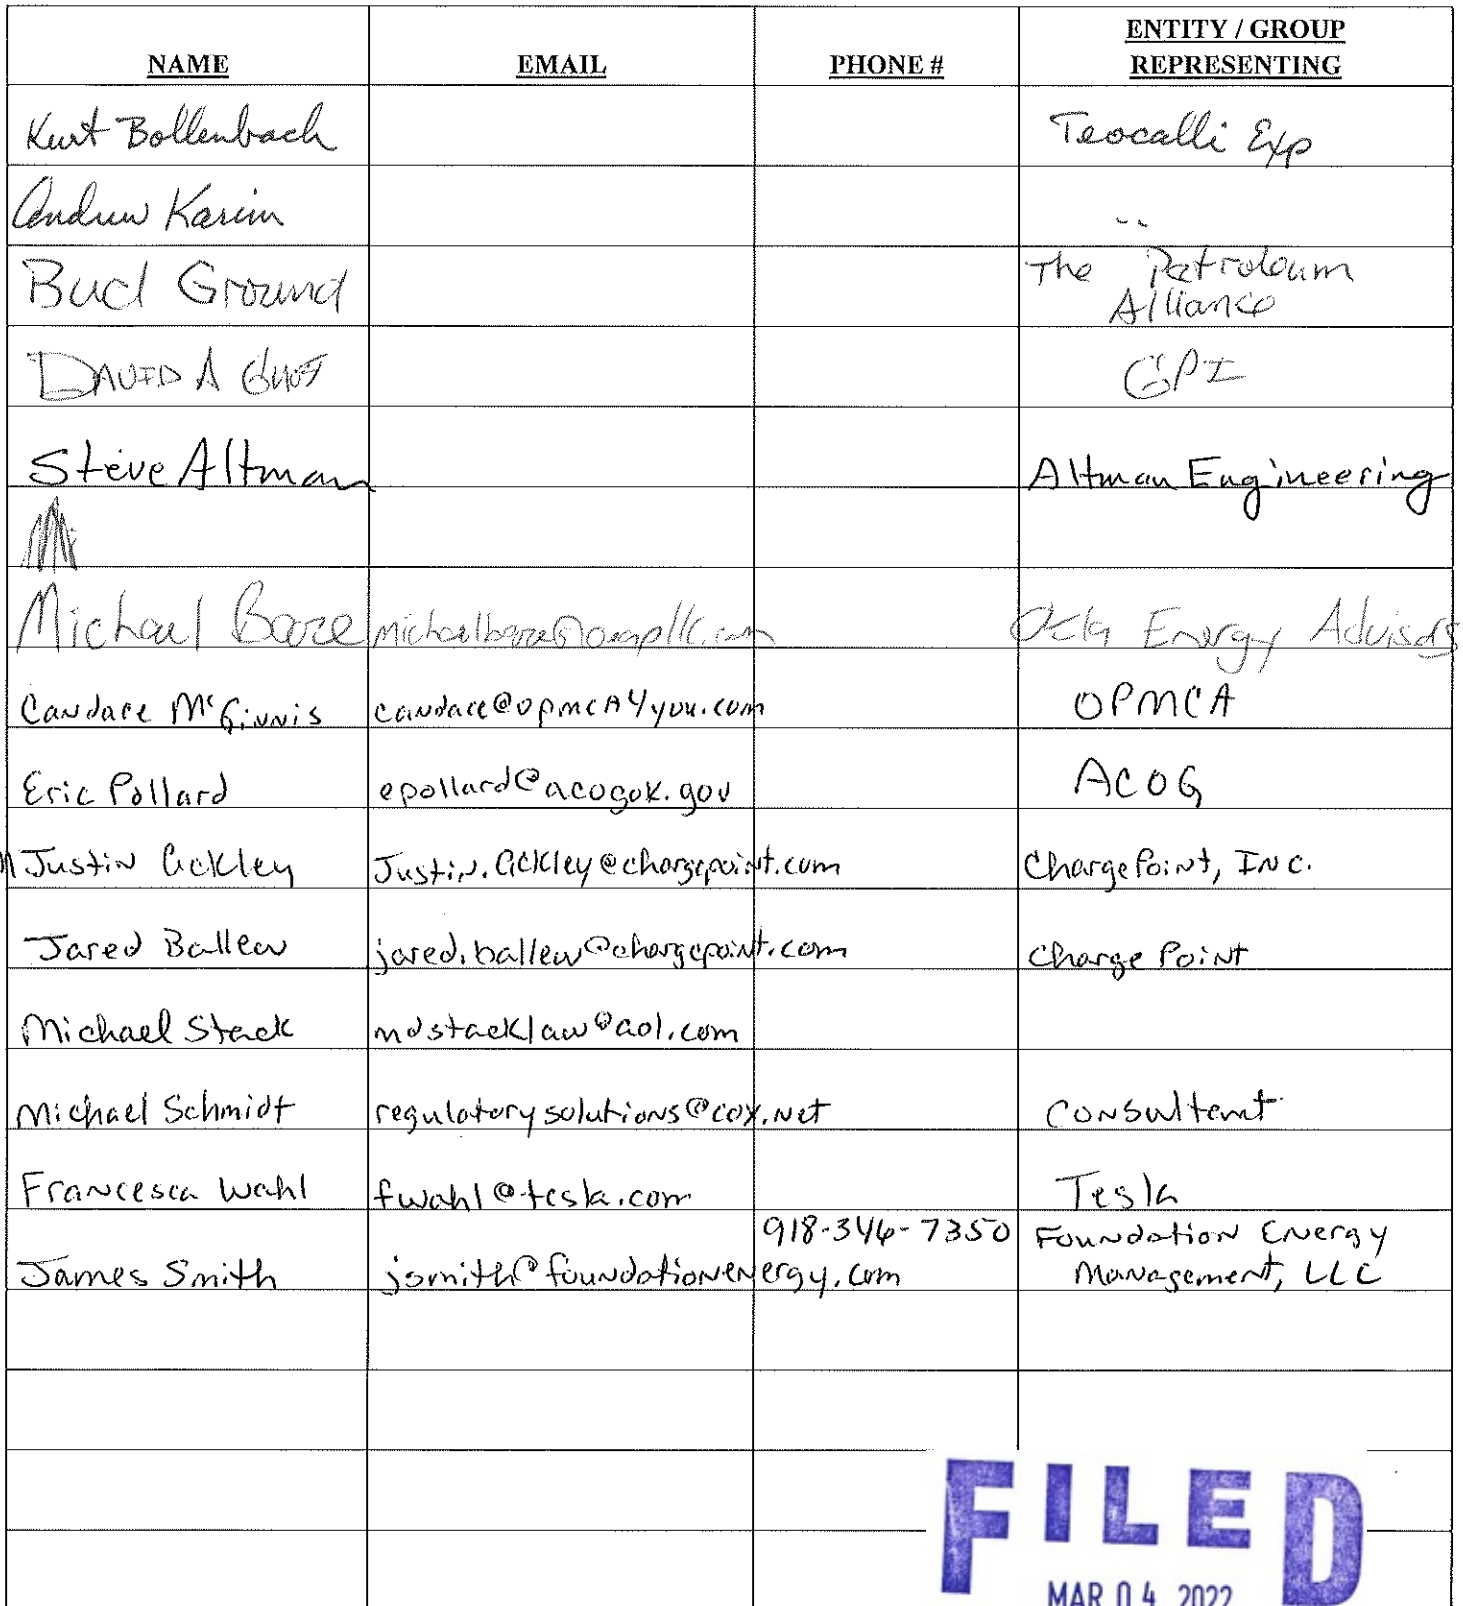 NAME EMAIL PHONE # ENTITY / GROUP
REPRESENTING
Kurt Bollenbach Teocalli Exp
Andrew Karim
Bud Ground The Petroleum
Alliance
DAVID A GPI
Steve Altman Altman Engineering
Michael Okla Energy Advisors
Candace McGinnis candace@opmcA4you.com OPMCA
Eric Pollard epollard@acogok.gov ACOG
Justin Ackley Justin.Ackley@chargepoint.com ChargePoint, INC.
Jared Ballew jared.ballew@chargepoint.com Charge Point
Michael Stack mdstacklaw@aol.com
Michael Schmidt regulatorysolutions@cox.net Consultant
Francesca Wahl fwahl@tesla.com Tesla
918-346-7350 Foundation Energy
James Smith jsmith@foundationenergy.com Management, LLC
FILED
MAR 04 2022